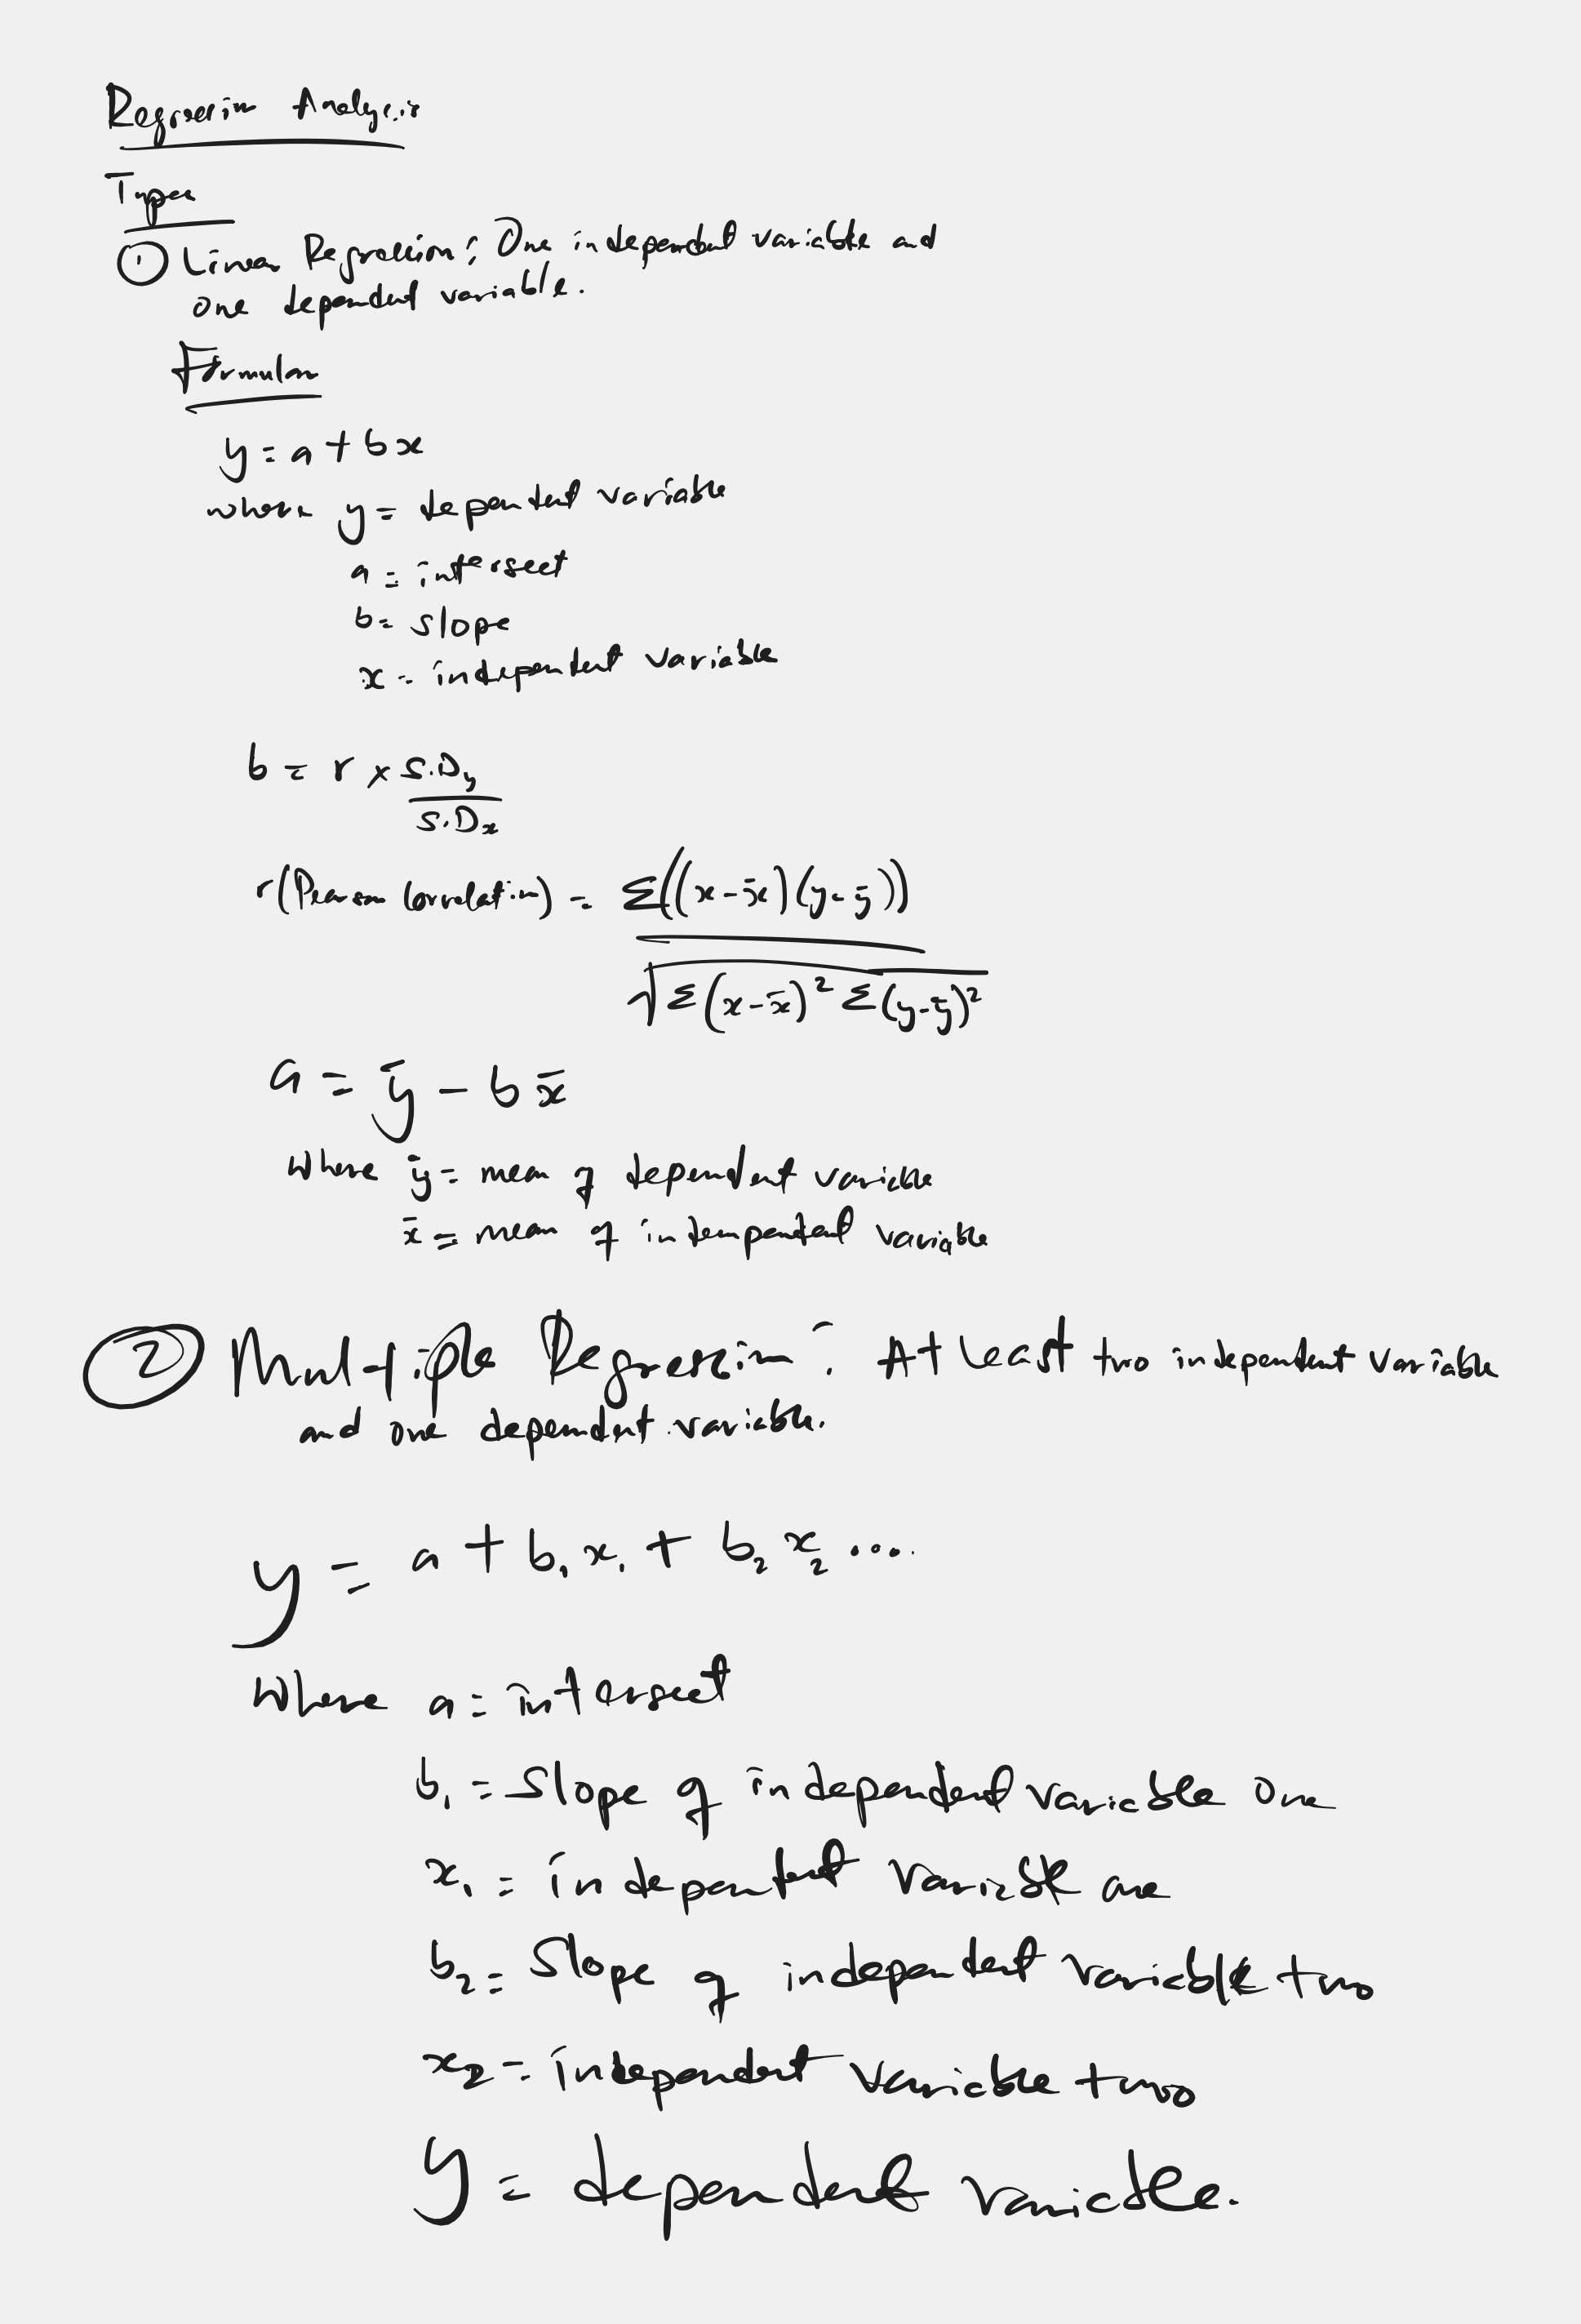 Regression Analysis
Types
① Linear Regression: One independent variable and
one dependent variable.
Formular
y = a + bx
where y = dependent variable
a = intersect
b = slope
x = independent variable
b = r × S.Dy / S.Dx
r(Pearson Correlation) = Σ((x-x̄)(y-ȳ)) / √Σ(x-x̄)² Σ(y-ȳ)²
a = ȳ - bx̄
Where ȳ = mean of dependent variable
x̄ = mean of independent variable
② Multiple Regression: At Least two independent variable
and one dependent variable.
y = a + b₁x₁ + b₂x₂ ....
Where a = intersect
b₁ = Slope of independent variable One
x₁ = independent variable one
b₂ = Slope of independent variable two
x₂ = independent variable two
y = dependent variable.